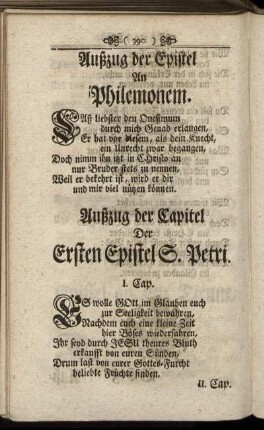 ( 390. )
Außzug der Epistel
An
Philemonem.
Laß liebster den Onesimum
durch mich Genad erlangen,
Er hat vor diesem, als dein Knecht,
ein Unrecht zwar begangen,
Doch nimm ihn itzt in Christo an
nur Bruder stets zu nennen,
Weil er bekehrt ist, wird er dir
und mir viel nützen können.
Außzug der Capitel
Der
Ersten Epistel S. Petri.
1. Cap.
ES wolle GOtt im Glauben euch
zur Seeligkeit bewahren,
Nachdem euch eine kleine Zeit
hier Böses wiederfahren,
Ihr seyd durch JESU theures Bluth
erkaufft von euren Sünden,
Drum last von eurer Gottes-Furcht
beliebte Früchte finden.
II. Cap.